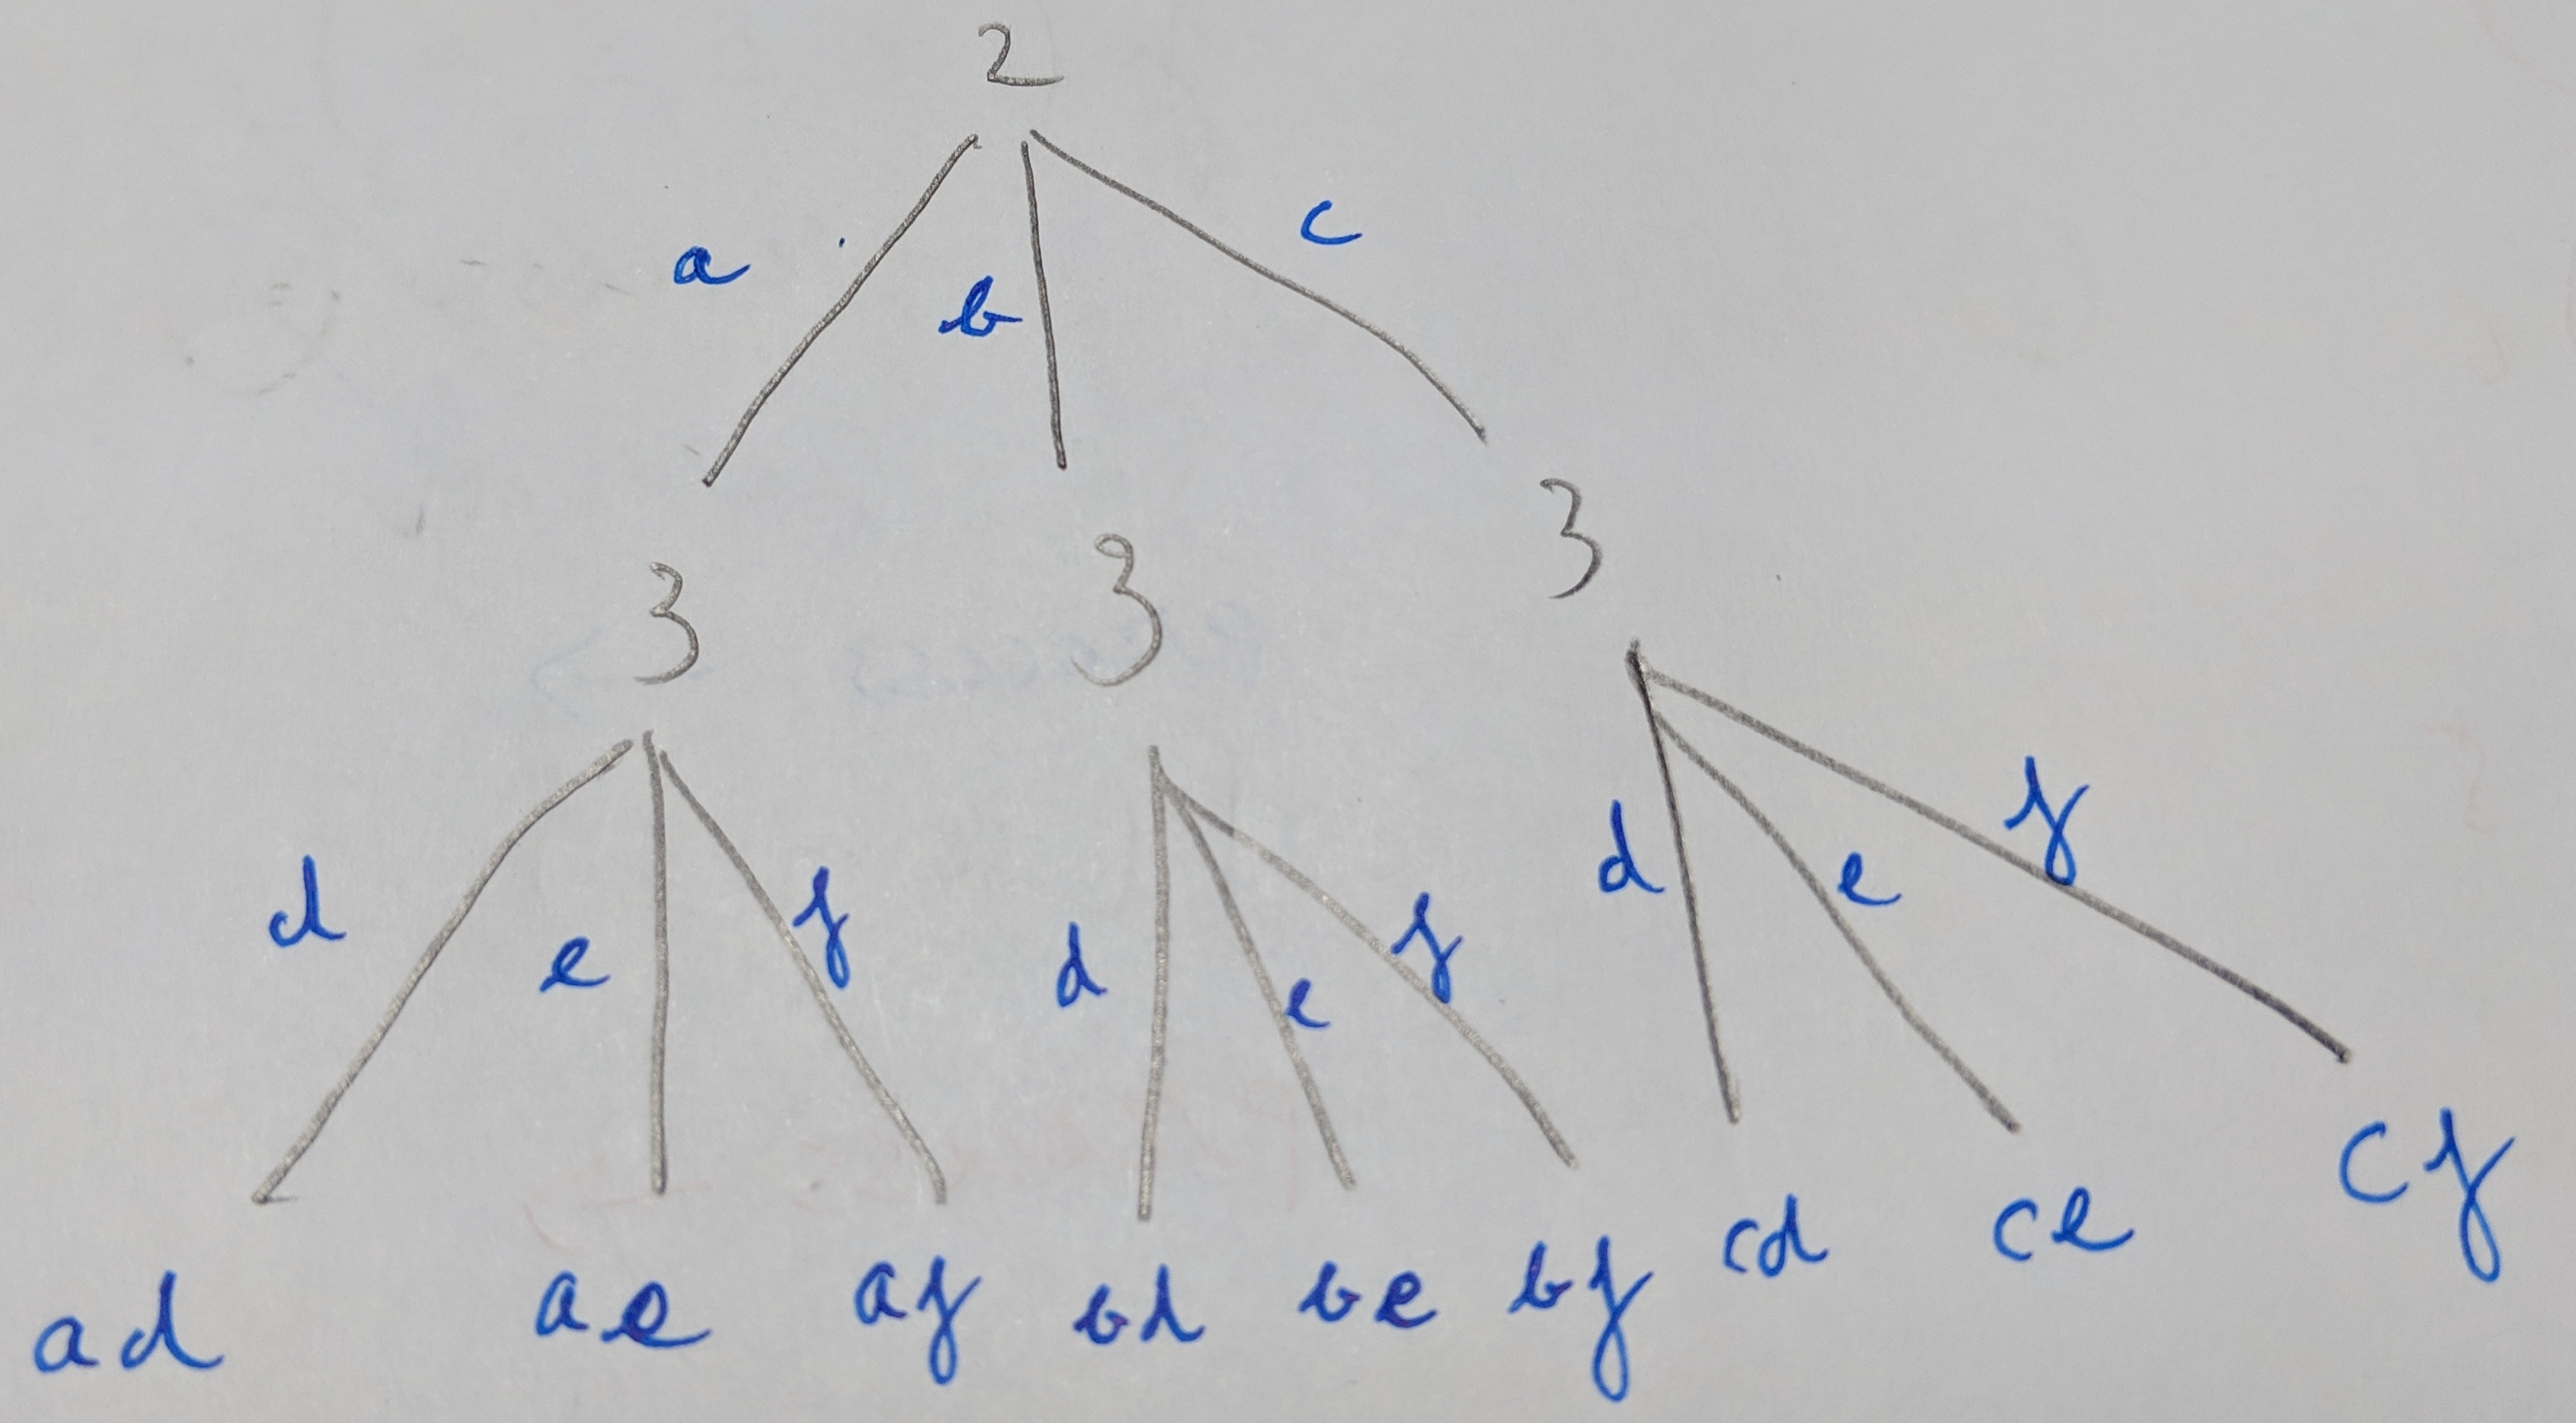 2
a b c
3 3 3
d e f d e f d e f
ad ae af bd be bf cd ce cf